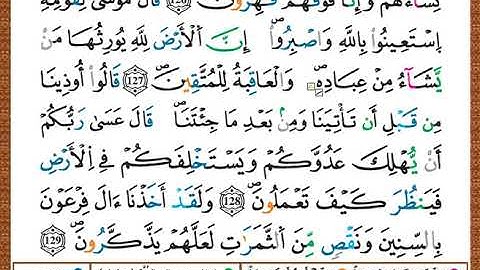 نِسَآءَهُمْ وَإِنَّا فَوْقَهُمْ قَٰهِرُونَۖ 126 قَالَ مُوسَىٰ لِقَوْمِهِ
اِ۪سْتَعِينُواْ بِاللَّهِ وَاصْبِرُوٓاْۖ إِنَّ اَ۬لْأَرْضَ لِلهِ يُورِثُهَا مَنْ
يَّشَآءُ مِنْ عِبَادِهِۦۖ وَالْعَٰقِبَةُ لِلْمُتَّقِينَۖ 127 قَالُوٓاْ أُوذِينَا
مِن قَبْلِ أَن تَأْتِيَنَا وَمِنۢ بَعْدِ مَا جِئْتَنَاۖ قَالَ عَسَىٰ رَبُّكُمْ
أَنْ يُّهْلِكَ عَدُوَّكُمْ وَيَسْتَخْلِفَكُمْ فِے اِ۬لْأَرْضِ
فَيَنظُرَ كَيْفَ تَعْمَلُونَۖ 128 وَلَقَدْ أَخَذْنَآ ءَالَ فِرْعَوْنَ
بِالسِّنِينَ وَنَقْصٖ مِّنَ اَ۬لثَّمَرَٰتِ لَعَلَّهُمْ يَذَّكَّرُونَۖ 129